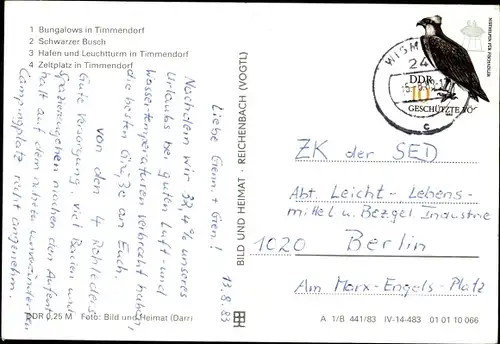 1 Bungalows in Timmendorf
2 Schwarzer Busch
3 Hafen und Leuchtturm in Timmendorf
4 Zeltplatz in Timmendorf
13.8.83
Liebe Genn. + Gen.!
Nachdem wir 32,4 % unseres
Urlaubs bei guten Luft- und
Wassertemperaturen verbracht haben,
die besten Grüße an Euch.
von den 4
Gute Versorgung, viel und
Spazierengehen machen den Aufent-
halt auf dem
Campingplatz recht angenehm.
DDR 0,25 M Foto: Bild und Heimat (Darr)
BILD UND HEIMAT · REICHENBACH (VOGTL)
WISM
24
DDR
10
GESCHÜTZTE VÖ
c
ZK der SED
Abt. Leicht-, Lebens-
mittel u. Bezgel. Industrie
1020 Berlin
Am Marx-Engels-Platz
A 1/B 441/83 IV-14-483 01 01 10 066